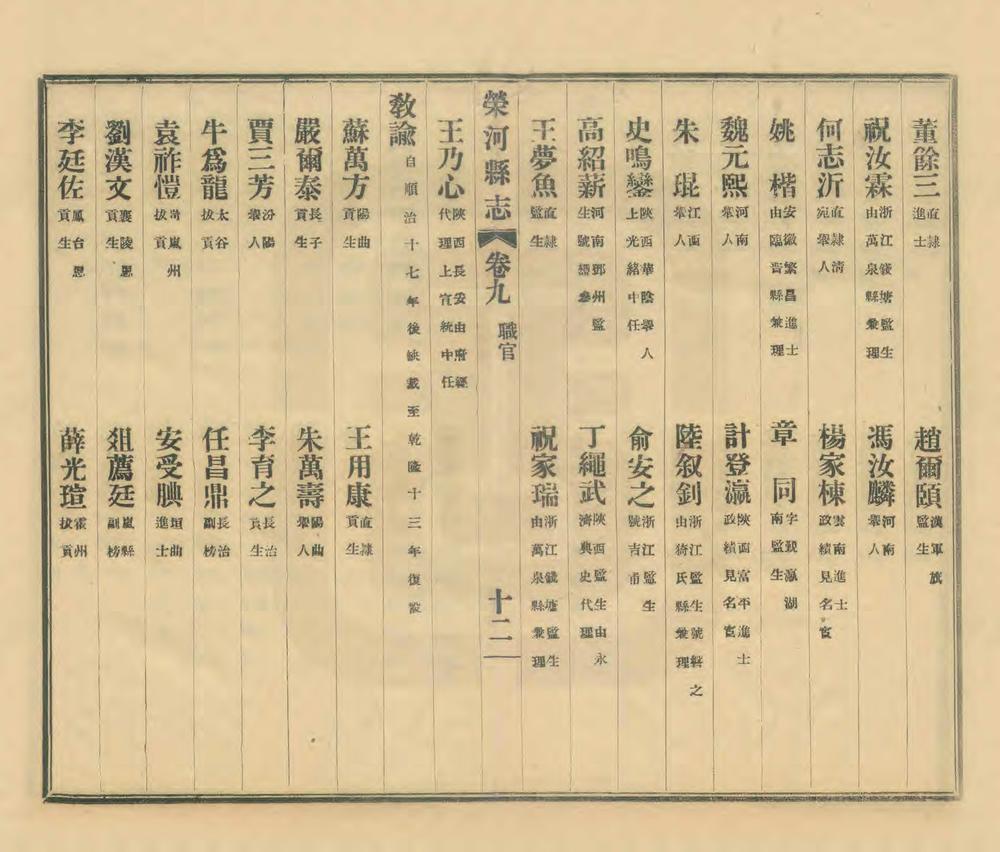 董餘三直隸進士　趙爾頤漢軍旗監生
祝汝霖浙江錢塘監生由萬泉縣兼理　馮汝麟河南舉人
何志沂直隸清宛舉人　楊家棟雲南進士政績見名宦
姚楷安徽繁昌進士由臨晉縣兼理　章同字觐瀛湖南監生
魏元熙河南舉人　計登瀛陝西富平進士政績見名宦
朱琨江西舉人　陸叙釗浙江監生號緝之由猗氏縣兼理
史鳴鑾陝西華陰舉人上光緒中任　俞安之浙江監生號吉甫
高紹薪河南鄧州監生號 　丁繩武陝西監生由永濟典史代理
王夢魚直隸監生　祝家瑞浙江錢塘監生由萬泉縣兼理
榮河縣志　卷九　職官　十二
王乃心陝西長安由府經代理上宣統中任
教諭自順治十七年後缺裁至乾隆十三年復設
蘇萬方陽曲貢生　王用康直隸貢生
嚴爾泰長子貢生　朱萬壽陽曲舉人
賈三芳汾陽舉人　李育之長治貢生
牛為龍太谷拔貢　任昌鼎長治副榜
袁祚愷岢嵐州拔貢　安受腆垣曲進士
劉漢文襄陵恩貢生　俎薦廷嵐縣副榜
李廷佐鳳台恩貢生　薛光瑄霍州拔貢